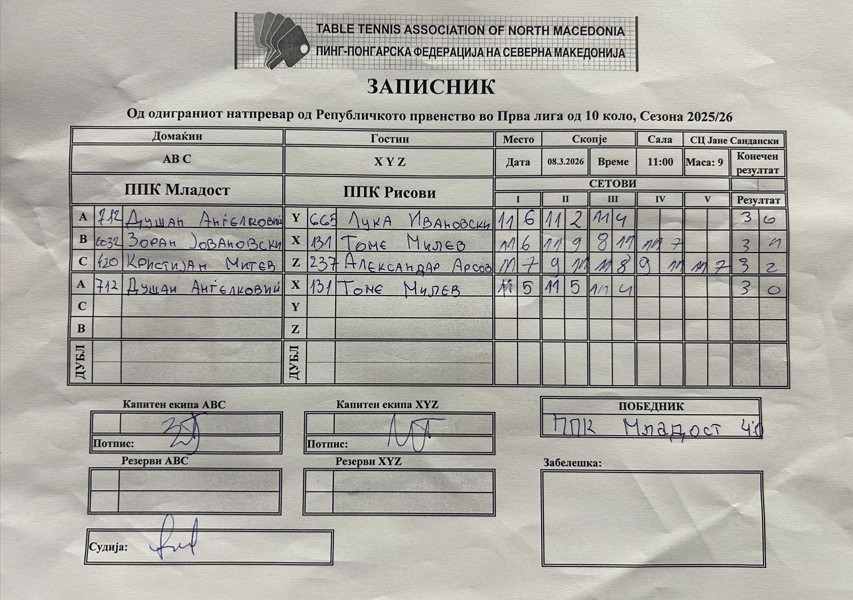 TABLE TENNIS ASSOCIATION OF NORTH MACEDONIA
ПИНГ-ПОНГАРСКА ФЕДЕРАЦИЈА НА СЕВЕРНА МАКЕДОНИЈА
ЗАПИСНИК
Од одиграниот натпревар од Републичкото првенство во Прва лига од 10 коло, Сезона 2025/26
Домаќин Гостин Место Скопје Сала СЦ Јане Сандански
A B C X Y Z Дата 08.3.2026 Време 11:00 Маса: 9 Конечен резултат
ППК Младост ППК Рисови СЕТОВИ
I II III IV V Резултат
A 712 Душан Анѓелковиќ Y 665 Лука Ивановски 11 6 11 2 11 4 3 0
B Зоран Јовановски X 131 Томе Милев 11 6 11 9 8 11 11 7 3 1
C 420 Кристијан Митев Z 237 Александар Арсов 11 7 9 11 11 8 9 11 11 7 3 2
A 712 Душан Анѓелковиќ X 131 Томе Милев 11 5 11 5 11 4 3 0
C Y
B Z
ДУБЛ ДУБЛ
Капитен екипа ABC Капитен екипа XYZ ПОБЕДНИК
ППК Младост 4:0
Потпис: Потпис:
Резерви ABC Резерви XYZ Забелешка:
Судија: